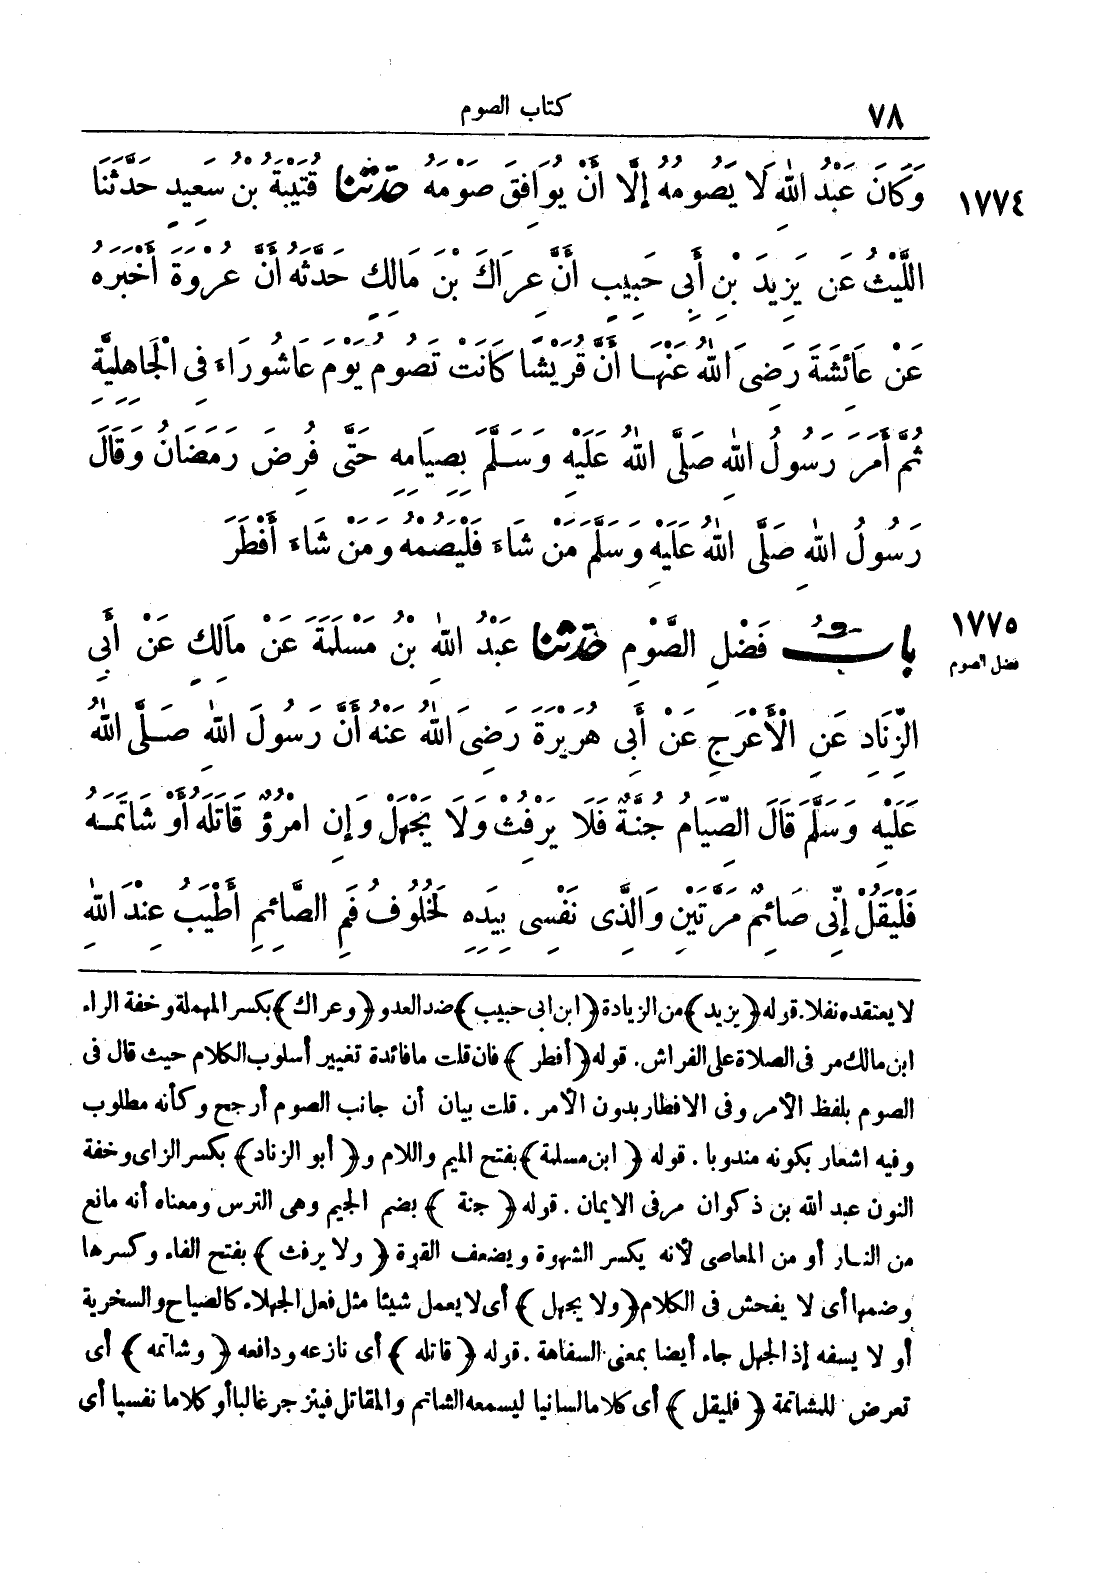 ٧٨
كتاب الصوم
١٧٧٤
وَكَانَ عَبْدُ اللهِ لَا يَصُومُهُ إِلَّا أَنْ يُوَافِقَ صَوْمَهُ حَدَّثَنَا قُتَيْبَةُ بْنُ سَعِيدٍ حَدَّثَنَا
اللَّيْثُ عَن يَزِيدَ بْنِ أَبِى حَبِيبٍ أَنَّ عِرَاكَ بْنَ مَالِكٍ حَدَّثَهُ أَنَّ عُرْوَةَ أَخْبَرَهُ
عَنْ عَائِشَةَ رَضِىَ اللهُ عَنْهَا أَنَّ قُرَيْشًا كَانَتْ تَصُومُ يَوْمَ عَاشُورَاءَ فِى الْجَاهِلِيَّةِ
ثُمَّ أَمَرَ رَسُولُ اللهِ صَلَّى اللهُ عَلَيْهِ وَسَلَّمَ بِصِيَامِهِ حَتَّى فُرِضَ رَمَضَانُ وَقَالَ
رَسُولُ اللهِ صَلَّى اللهُ عَلَيْهِ وَسَلَّمَ مَنْ شَاءَ فَلْيَصُمْهُ وَمَنْ شَاءَ أَفْطَرَ
١٧٧٥
فضل الصوم
بَابُ فَضْلِ الصَّوْمِ حَدَّثَنَا عَبْدُ اللهِ بْنُ مَسْلَمَةَ عَنْ مَالِكٍ عَنْ أَبِى
الزِّنَادِ عَنِ الْأَعْرَجِ عَنْ أَبِى هُرَيْرَةَ رَضِىَ اللهُ عَنْهُ أَنَّ رَسُولَ اللهِ صَلَّى اللهُ
عَلَيْهِ وَسَلَّمَ قَالَ الصِّيَامُ جُنَّةٌ فَلَا يَرْفُثْ وَلَا يَجْهَلْ وَإِنِ امْرُؤٌ قَاتَلَهُ أَوْ شَاتَمَهُ
فَلْيَقُلْ إِنِّى صَائِمٌ مَرَّتَيْنِ وَالَّذِى نَفْسِى بِيَدِهِ لَخُلُوفُ فَمِ الصَّائِمِ أَطْيَبُ عِنْدَ اللهِ
لا يعتقده نفلا. قوله ﴿يزيد﴾ من الزيادة ﴿ابن ابى حبيب﴾ ضد العدو ﴿وعراك﴾ بكسر المهملة وخفة الراء
ابن مالك مر فى الصلاة على الفراش. قوله ﴿أفطر﴾ فان قلت ما فائدة تغيير أسلوب الكلام حيث قال فى
الصوم بلفظ الأمر وفى الافطار بدون الأمر. قلت بيان أن جانب الصوم أرجح وكأنه مطلوب
وفيه اشعار بكونه مندوبا. قوله ﴿ابن مسلمة﴾ بفتح الميم واللام و﴿أبو الزناد﴾ بكسر الزاى وخفة
النون عبد الله بن ذكوان مر فى الايمان. قوله ﴿جنة﴾ بضم الجيم وهى الترس ومعناه أنه مانع
من النار أو من المعاصى لأنه يكسر الشهوة ويضعف القوة ﴿ولا يرفث﴾ بفتح الفاء وكسرها
وضمها أى لا يفحش فى الكلام ﴿ولا يجهل﴾ أى لا يعمل شيئا مثل فعل الجهلاء كالصياح والسخرية
أو لا يسفه إذ الجهل جاء أيضا بمعنى السفاهة. قوله ﴿قاتله﴾ أى نازعه ودافعه ﴿وشاتمه﴾ أى
تعرض للمشاتمة ﴿فليقل﴾ أى كلاما لسانيا ليسمعه الشاتم والمقاتل فينزجر غالبا أو كلاما نفسيا أى